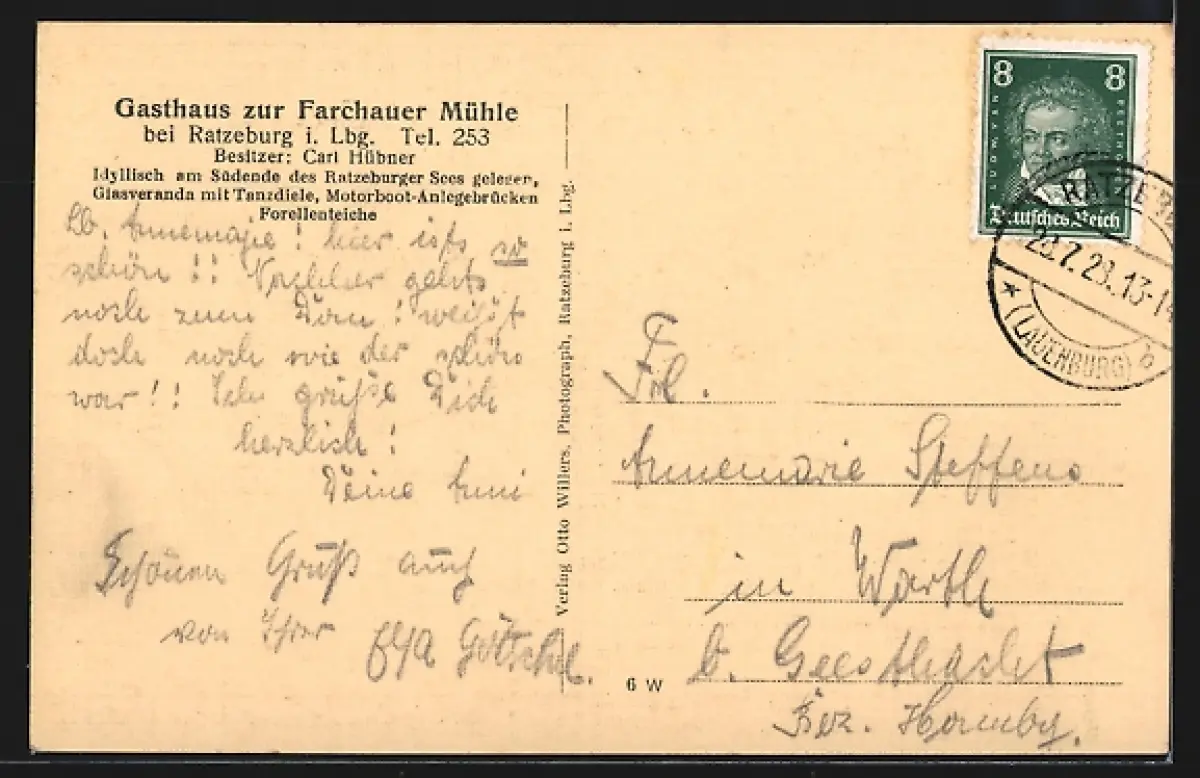 Gasthaus zur Farchauer Mühle
bei Ratzeburg i. Lbg. Tel. 253
Besitzer: Carl Hübner
Idyllisch am Südende des Ratzeburger Sees gelegen,
Glasveranda mit Tanzdiele, Motorboot-Anlegebrücken
Forellenteiche
Lb. Annemarie! hier ists so
schön!! Nachher gehts
noch zum Dom! weißt
doch noch wie der schön
war!! Ich grüße Dich
herzlich!
Deine Anni
Schönen Gruß auch
von Ihrer
Verlag Otto Willers, Photograph, Ratzeburg i. Lbg.
6 W
8 8
LUDWIG VAN BEETHOVEN
Deutsches Reich
RATZEBU
13-14
* (LAUENBURG) b
Frl.
Annemarie Steffens
in Worth
b. Geesthacht
Bez. Hambg.